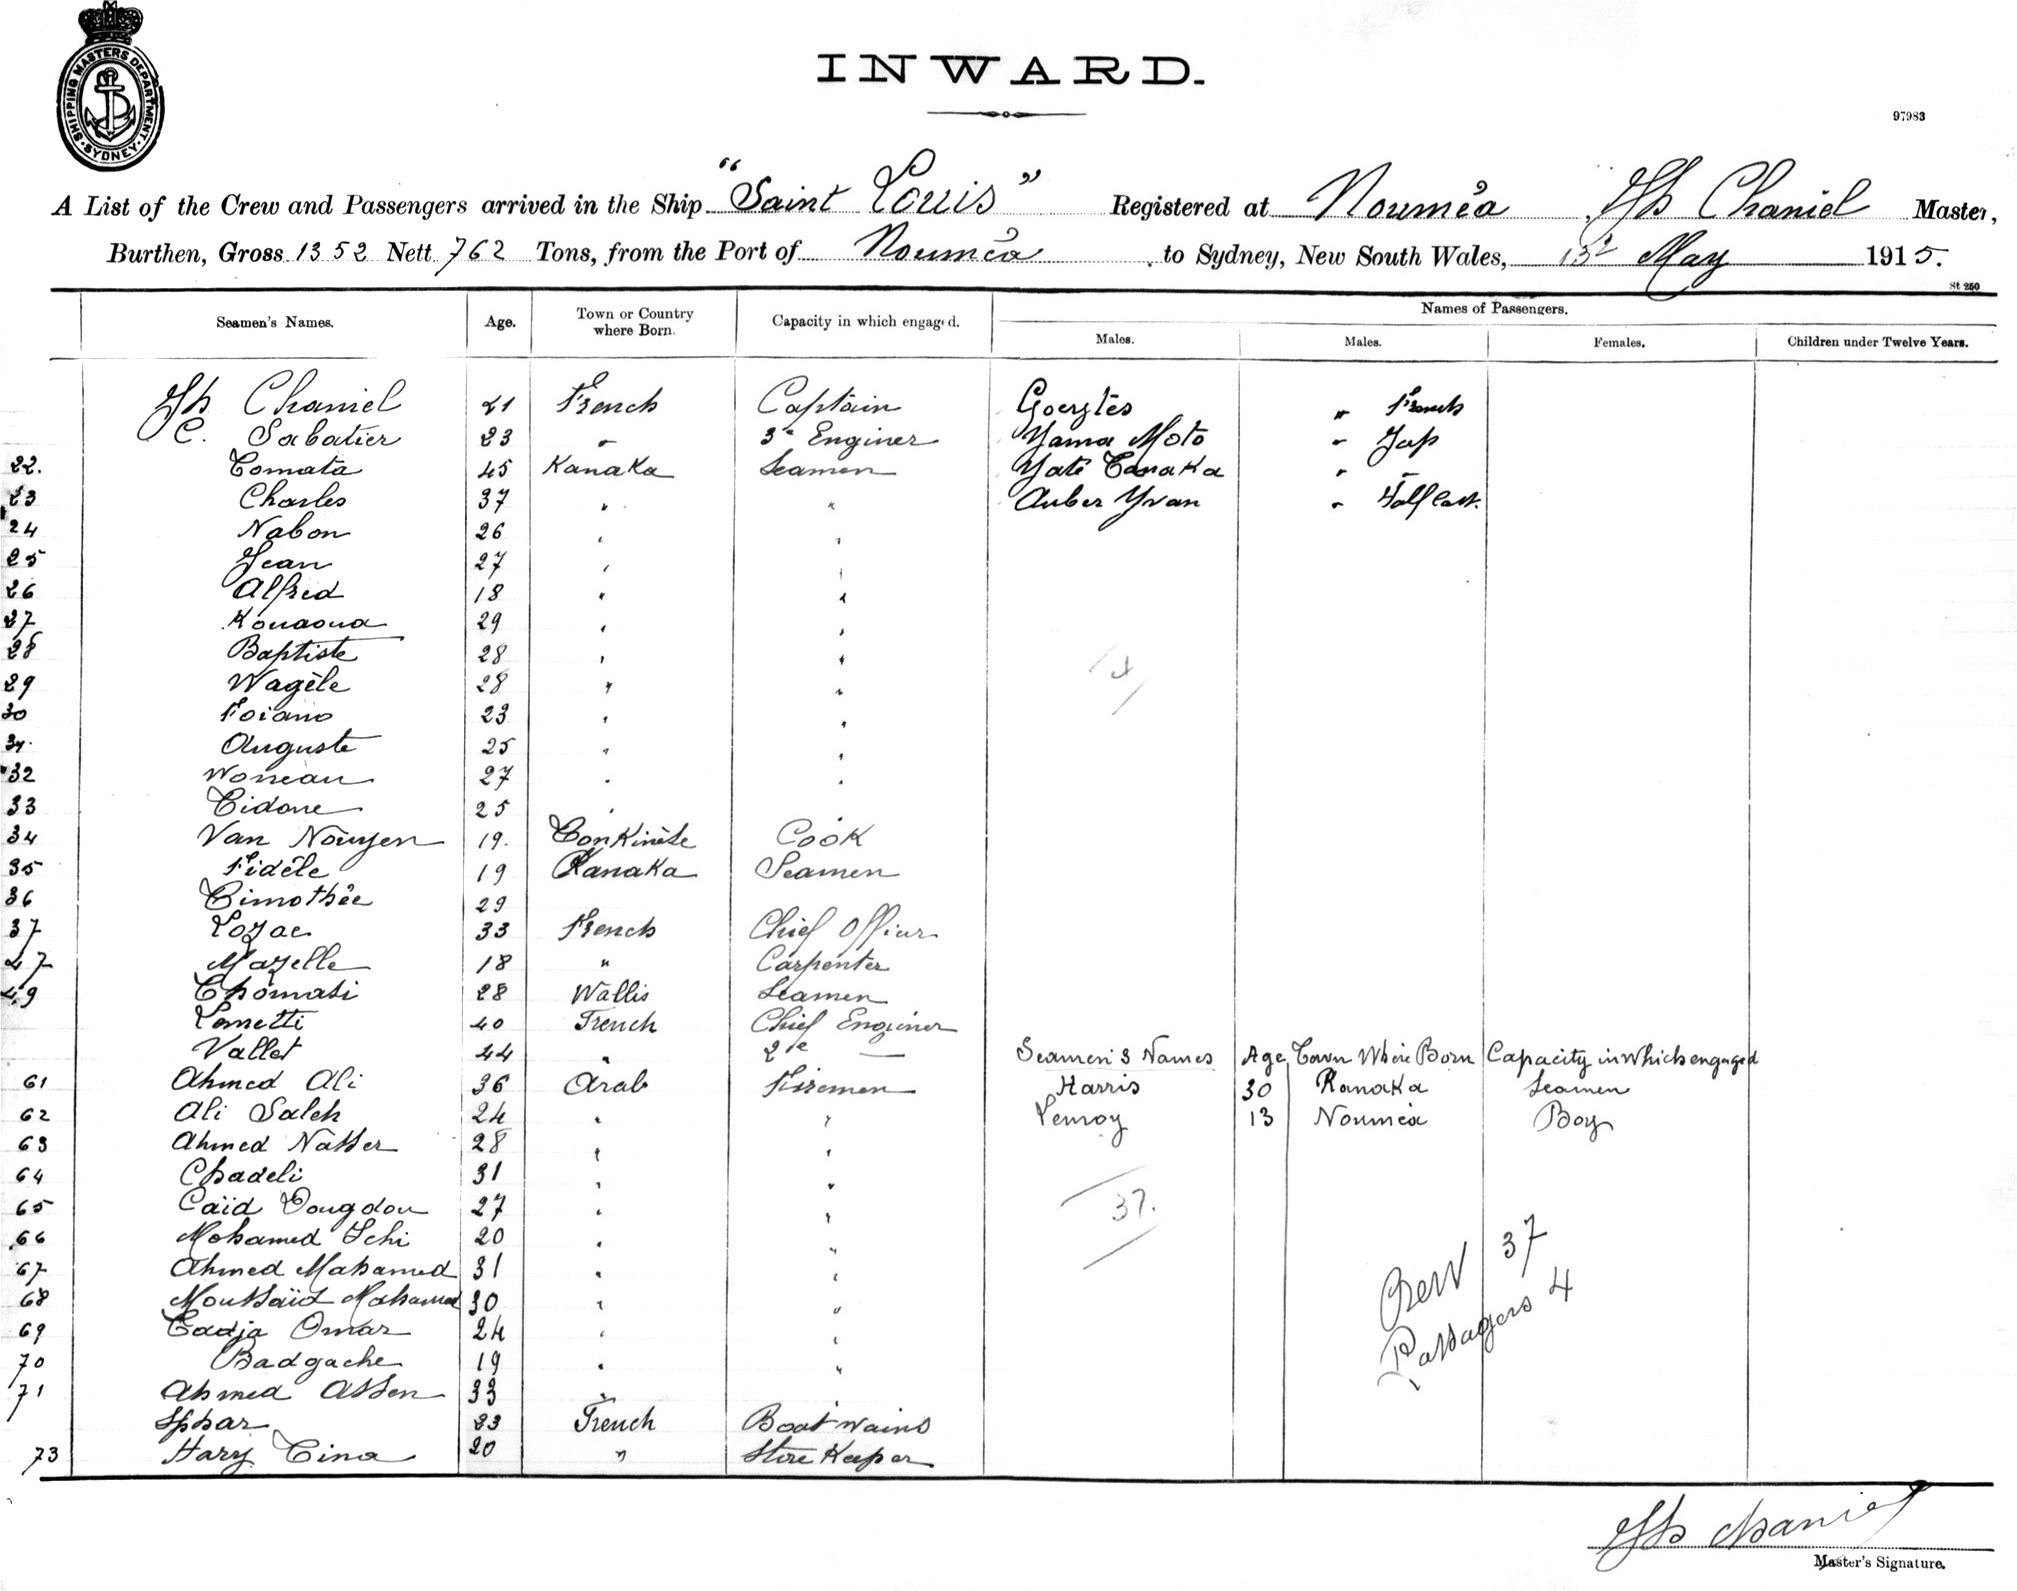 SHIPPING MASTERS DEPARTMENT
SYDNEY
INWARD.
97983
A List of the Crew and Passengers arrived in the Ship "Saint Louis" Registered at Nouméa Jh Chaniel Master,
Burthen, Gross 1352 Nett 762 Tons, from the Port of Nouméa to Sydney, New South Wales, 13 May 1915.
St 250
Seamen's Names. Age. Town or Country where Born. Capacity in which engaged. Names of Passengers.
Males. Males. Females. Children under Twelve Years.
Jh Chaniel 41 French Captain Goerytes " French
C. Sabatier 23 " 3e Enginer Yama Moto " Jap
22. Tomata 45 Kanaka Seamen Yate Tanaka " "
23 Charles 37 " " Auber Yvan " Half Cast.
24 Nabon 26 " "
25 Jean 27 " "
26 Alfred 18 " "
27 Kouaoua 29 " "
28 Baptiste 28 " "
29 Wagèle 28 " "
30 Foiano 23 " "
31. Auguste 25 " "
32 Woneau 27 " "
33 Tidone 25 " "
34 Van Nouyen 19. Tonkinese Cook
35 Fidèle 19 Kanaka Seamen
36 Timothée 29
37 Lozac 33 French Chief Officer
47 Mazelle 18 " Carpenter
49 Thomasi 28 Wallis Seamen
Lometti 40 French Chief Enginer
Vallet 44 " 2e — Seamen's Names Age Town Where Born Capacity in which engaged
61 Ahmed Ali 36 Arab Firemen Harris 30 Kanaka Seamen
62 Ali Saleh 24 " " Lemoy 13 Nouméa Boy
63 Ahmed Nasser 28 " "
64 Chadeli 31 " "
65 Caïd Dougdou 27 " "
66 Mohamed Ichi 20 " "
67 Ahmed Mahamed 31 " "
68 Moussaïd Mohamed 30 " "
69 Cadja Omar 24 " "
70 Badgache 19 " "
71 Ahmed Assen 33 " "
Sphar 23 French Boatswains
73 Hary Tina 20 " Store Keeper
4
37.
Crew 37
Passagers 4
Jh Chaniel
Master's Signature.